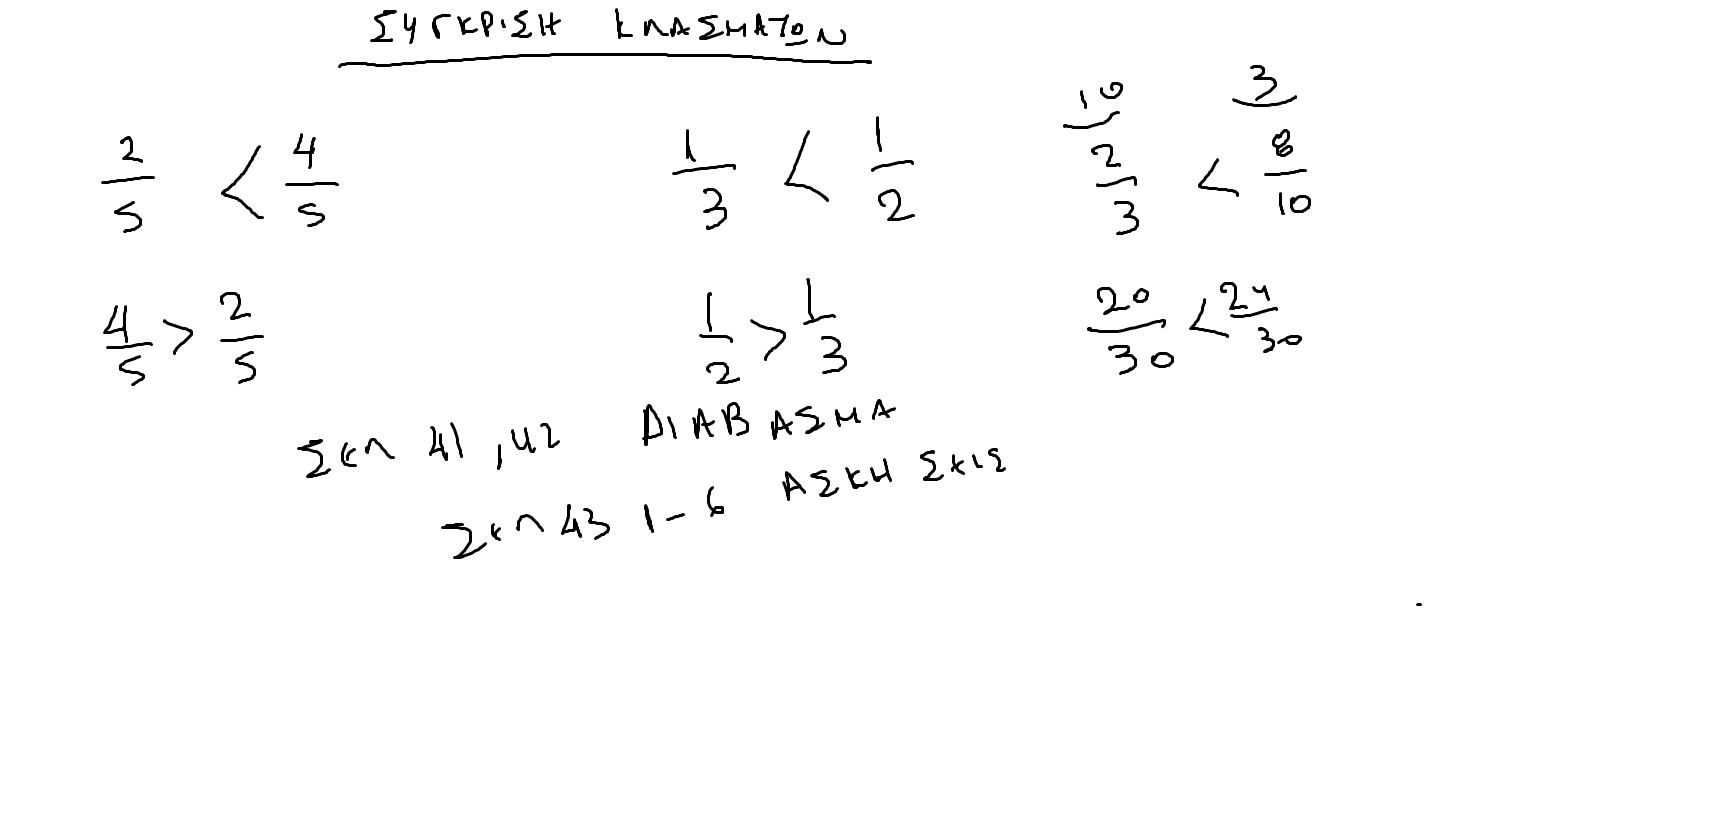 ΣΥΓΚΡΙΣΗ ΚΛΑΣΜΑΤΩΝ
2/5 < 4/5
1/3 < 1/2
10 3
2/3 < 8/10
4/5 > 2/5
1/2 > 1/3
20/30 < 24/30
Σελ 41, 42 ΔΙΑΒΑΣΜΑ
Σελ 43 1-6 ΑΣΚΗΣΕΙΣ